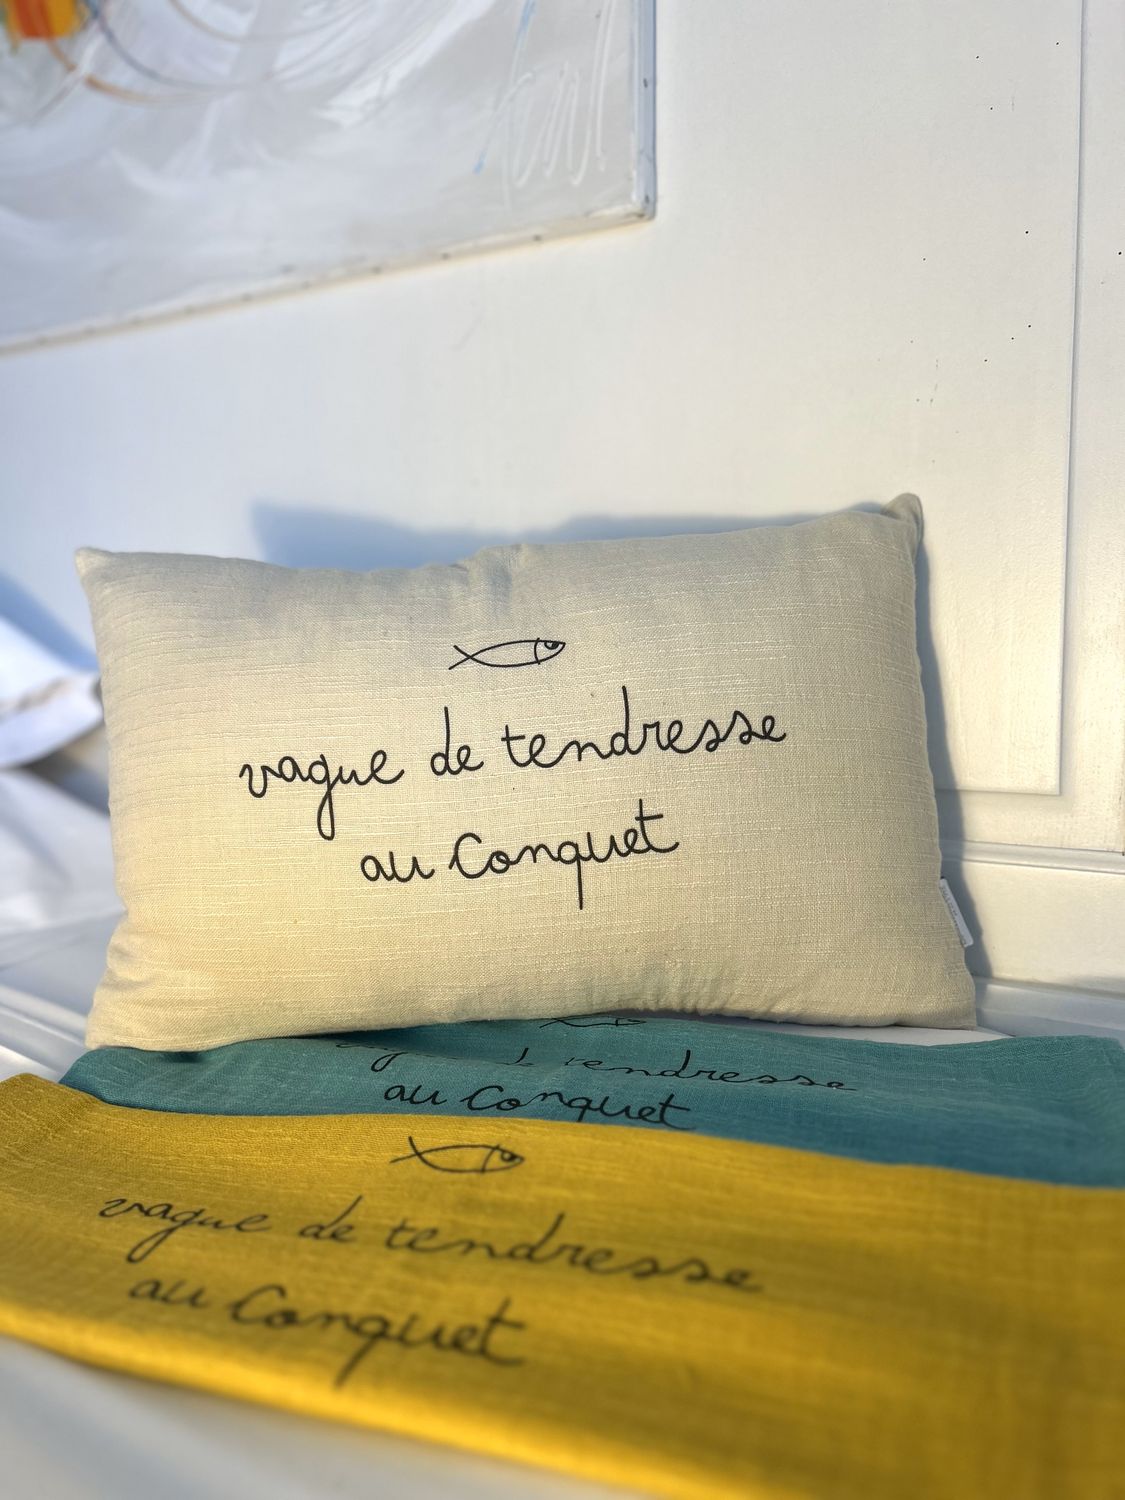 vague de tendresse
au Conquet
tendresse
au Conquet
vague de tendresse
au Conquet